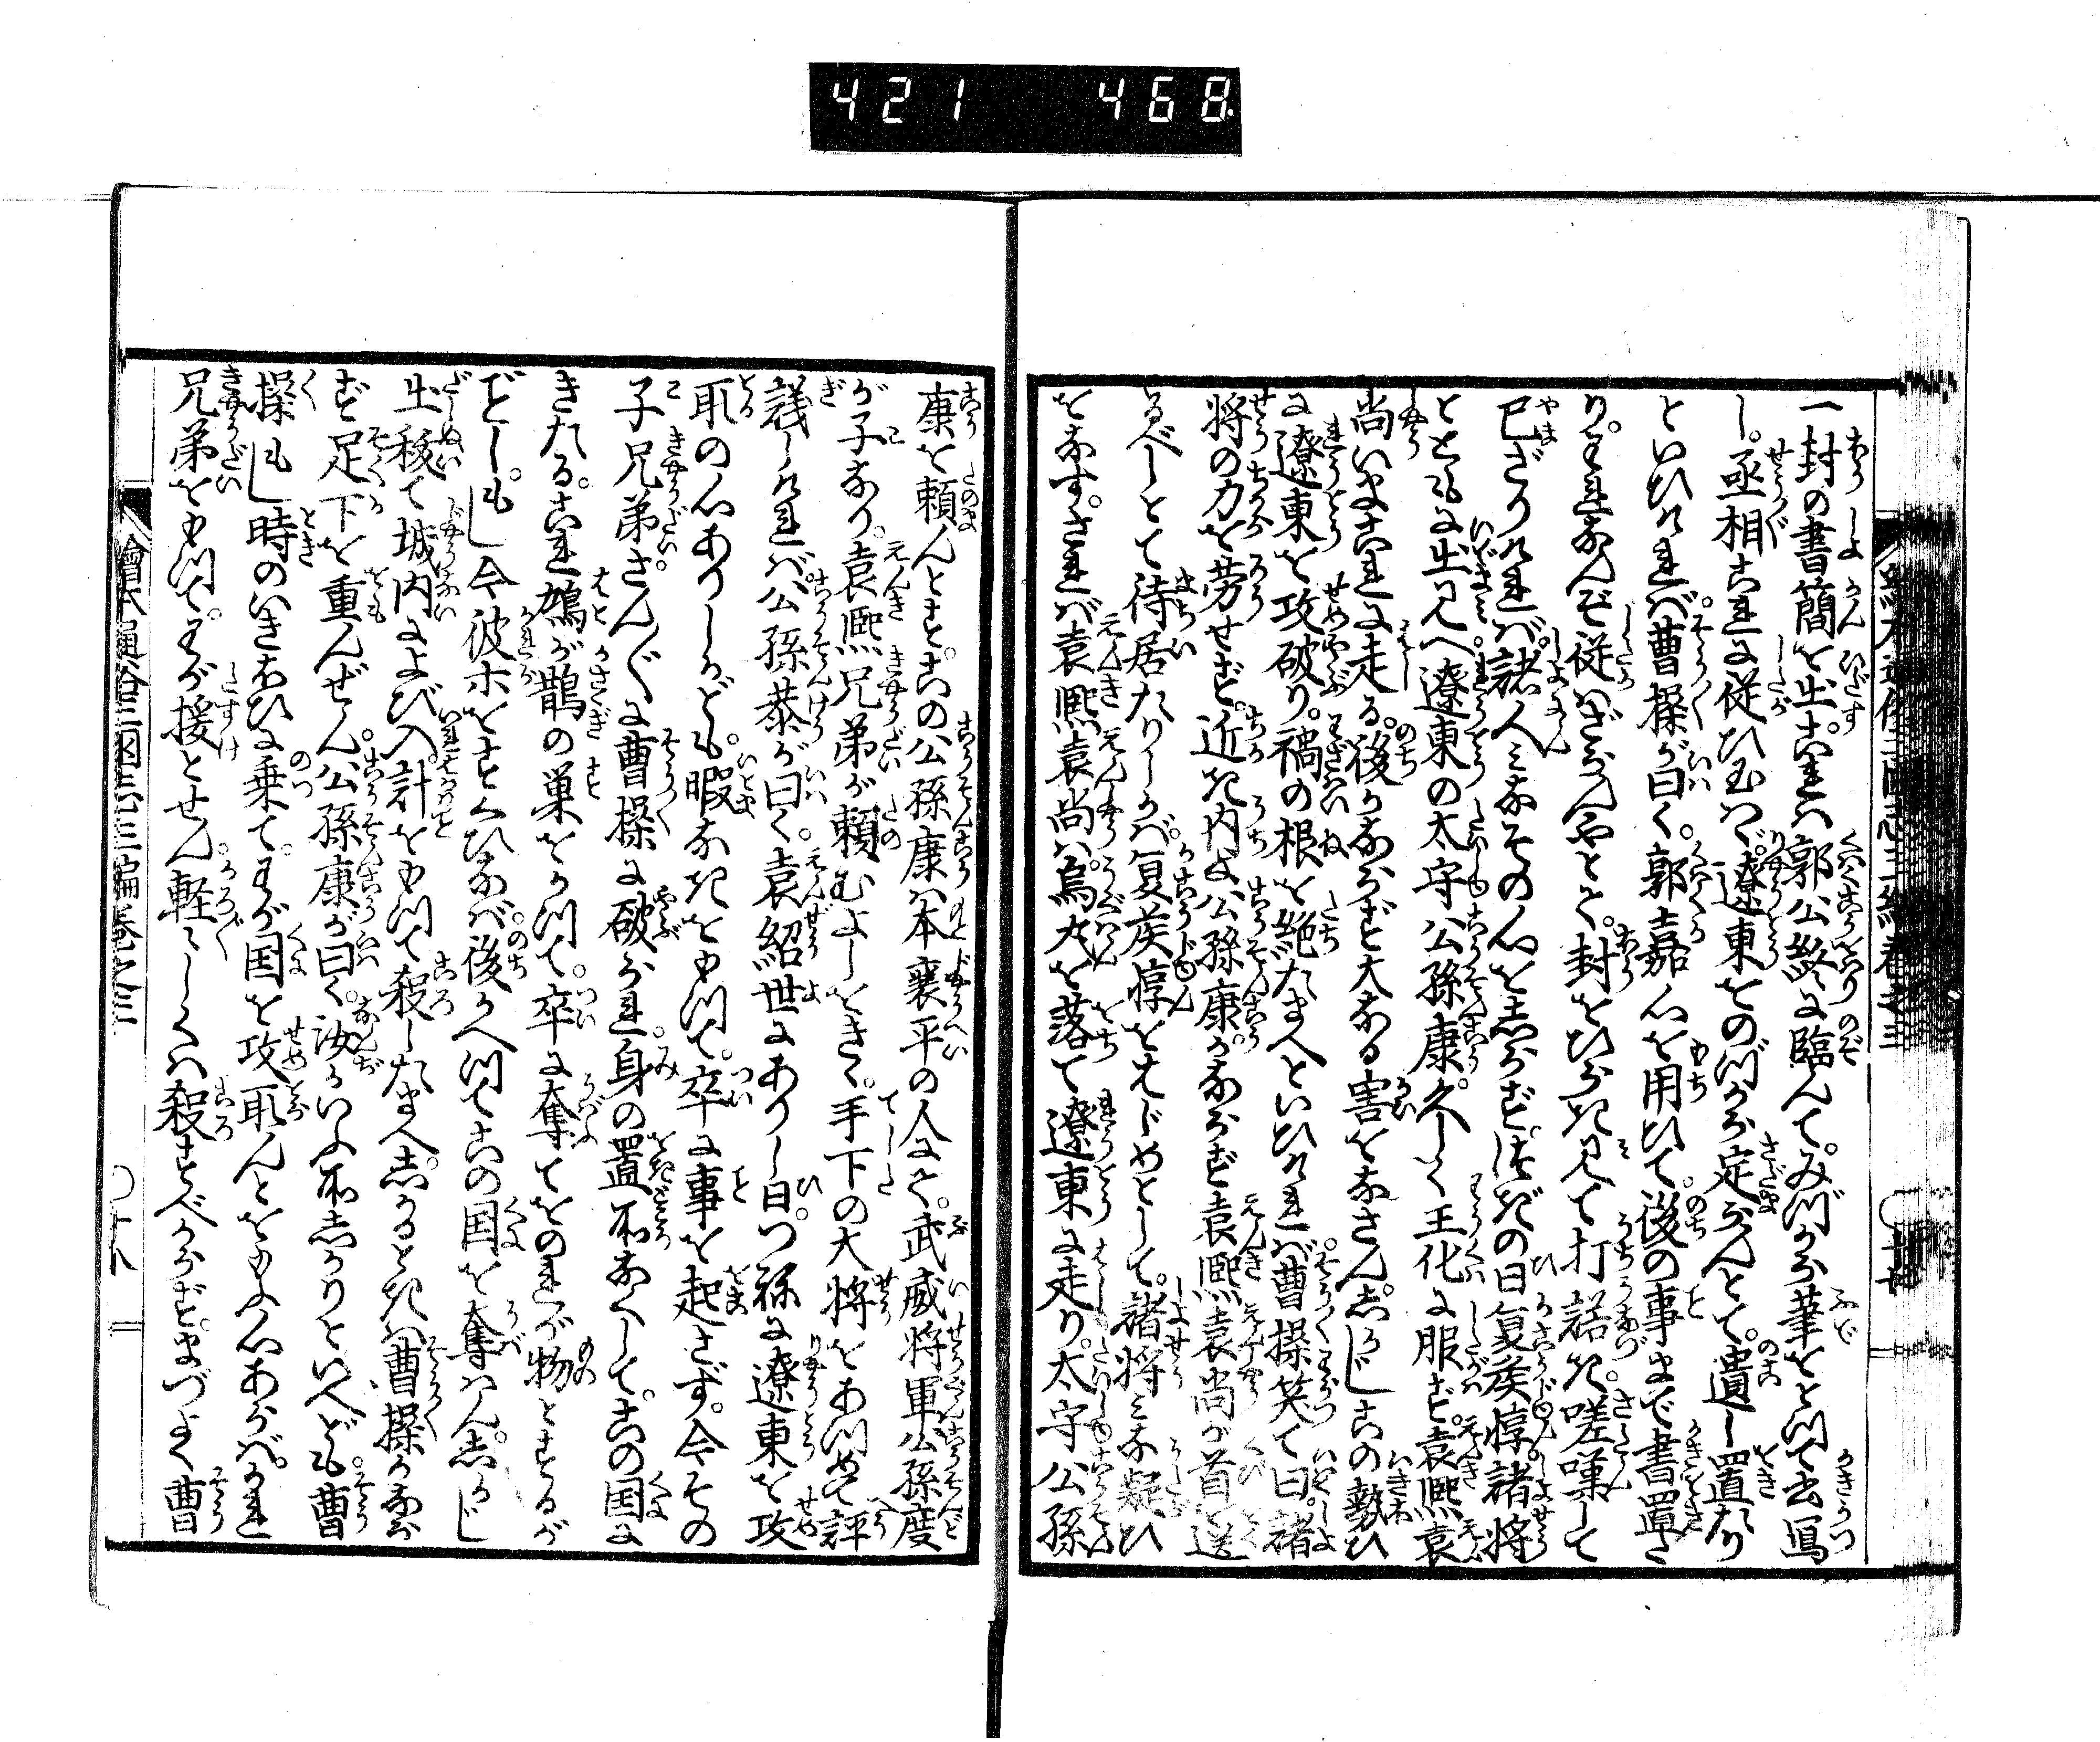 421 468
一封の書簡を出す。これハ郭公終に臨んで。みづから筆をとつて書寫
し。丞相これに従ひ玉はゞ。遼東をのづから定らんとて。遺し置たり
といひければ。曹操が曰く。郭嘉心を用ひて。後の事まで書置き
り。われなんぞ従はざらんやとて。封をひらき見て打諾き。嗟嘆して
已ざりければ。諸人みなその心をしらず。次の日夏侯惇諸将
とともに出見へ。遼東の太守公孫康。久しく王化に服せず。袁熈袁
尚いまこれに走る。後かならず大なる害をなさん。しかじこの勢ひ
に遼東を攻破り。禍の根を絶たまへといひければ。曹操笑て曰。諸
将の力を労せず。近き内に公孫康。かならず袁熈袁尚が首を送
るべしとて待居たりしかば。夏侯惇をはじめとして。諸将みな疑ひ
をなす。されば袁熈袁尚は。烏丸を落て遼東に走り。太守公孫
康を頼んとす。この公孫康は本襄平の人にて。武威将軍公孫度
が子なり。袁熈兄弟が頼むよしをきゝ。手下の大将をあつめて評
議しければ。公孫恭が曰く。袁紹世にありし日。つねに遼東を攻
取の心ありしかども。暇なきをもつて。卒に事を起さず。今その
子兄弟。さん〴〵に曹操に破られ。身の置所なくして。この国に
きたる。これ鳩が鵲の巣をかつて。卒に奪てをのれが物とするが
ごとし。もし今彼等をすくひなば。後かへつてこの国を奪はん。しかじ
出移て城内によび入。計をもつて殺したまへ。しかるときは曹操かなら
ず足下を重んぜん。公孫康が曰く。汝がいふ所しかりといへども。曹
操もし時のいきほひに乗て。わが国を攻取んとをもふ心あらば。かれ
兄弟をもつて。わが援とせん。軽〳〵しくは殺すべからず。まづよく曹
繪本通俗三国志三編巻之三
〇十八